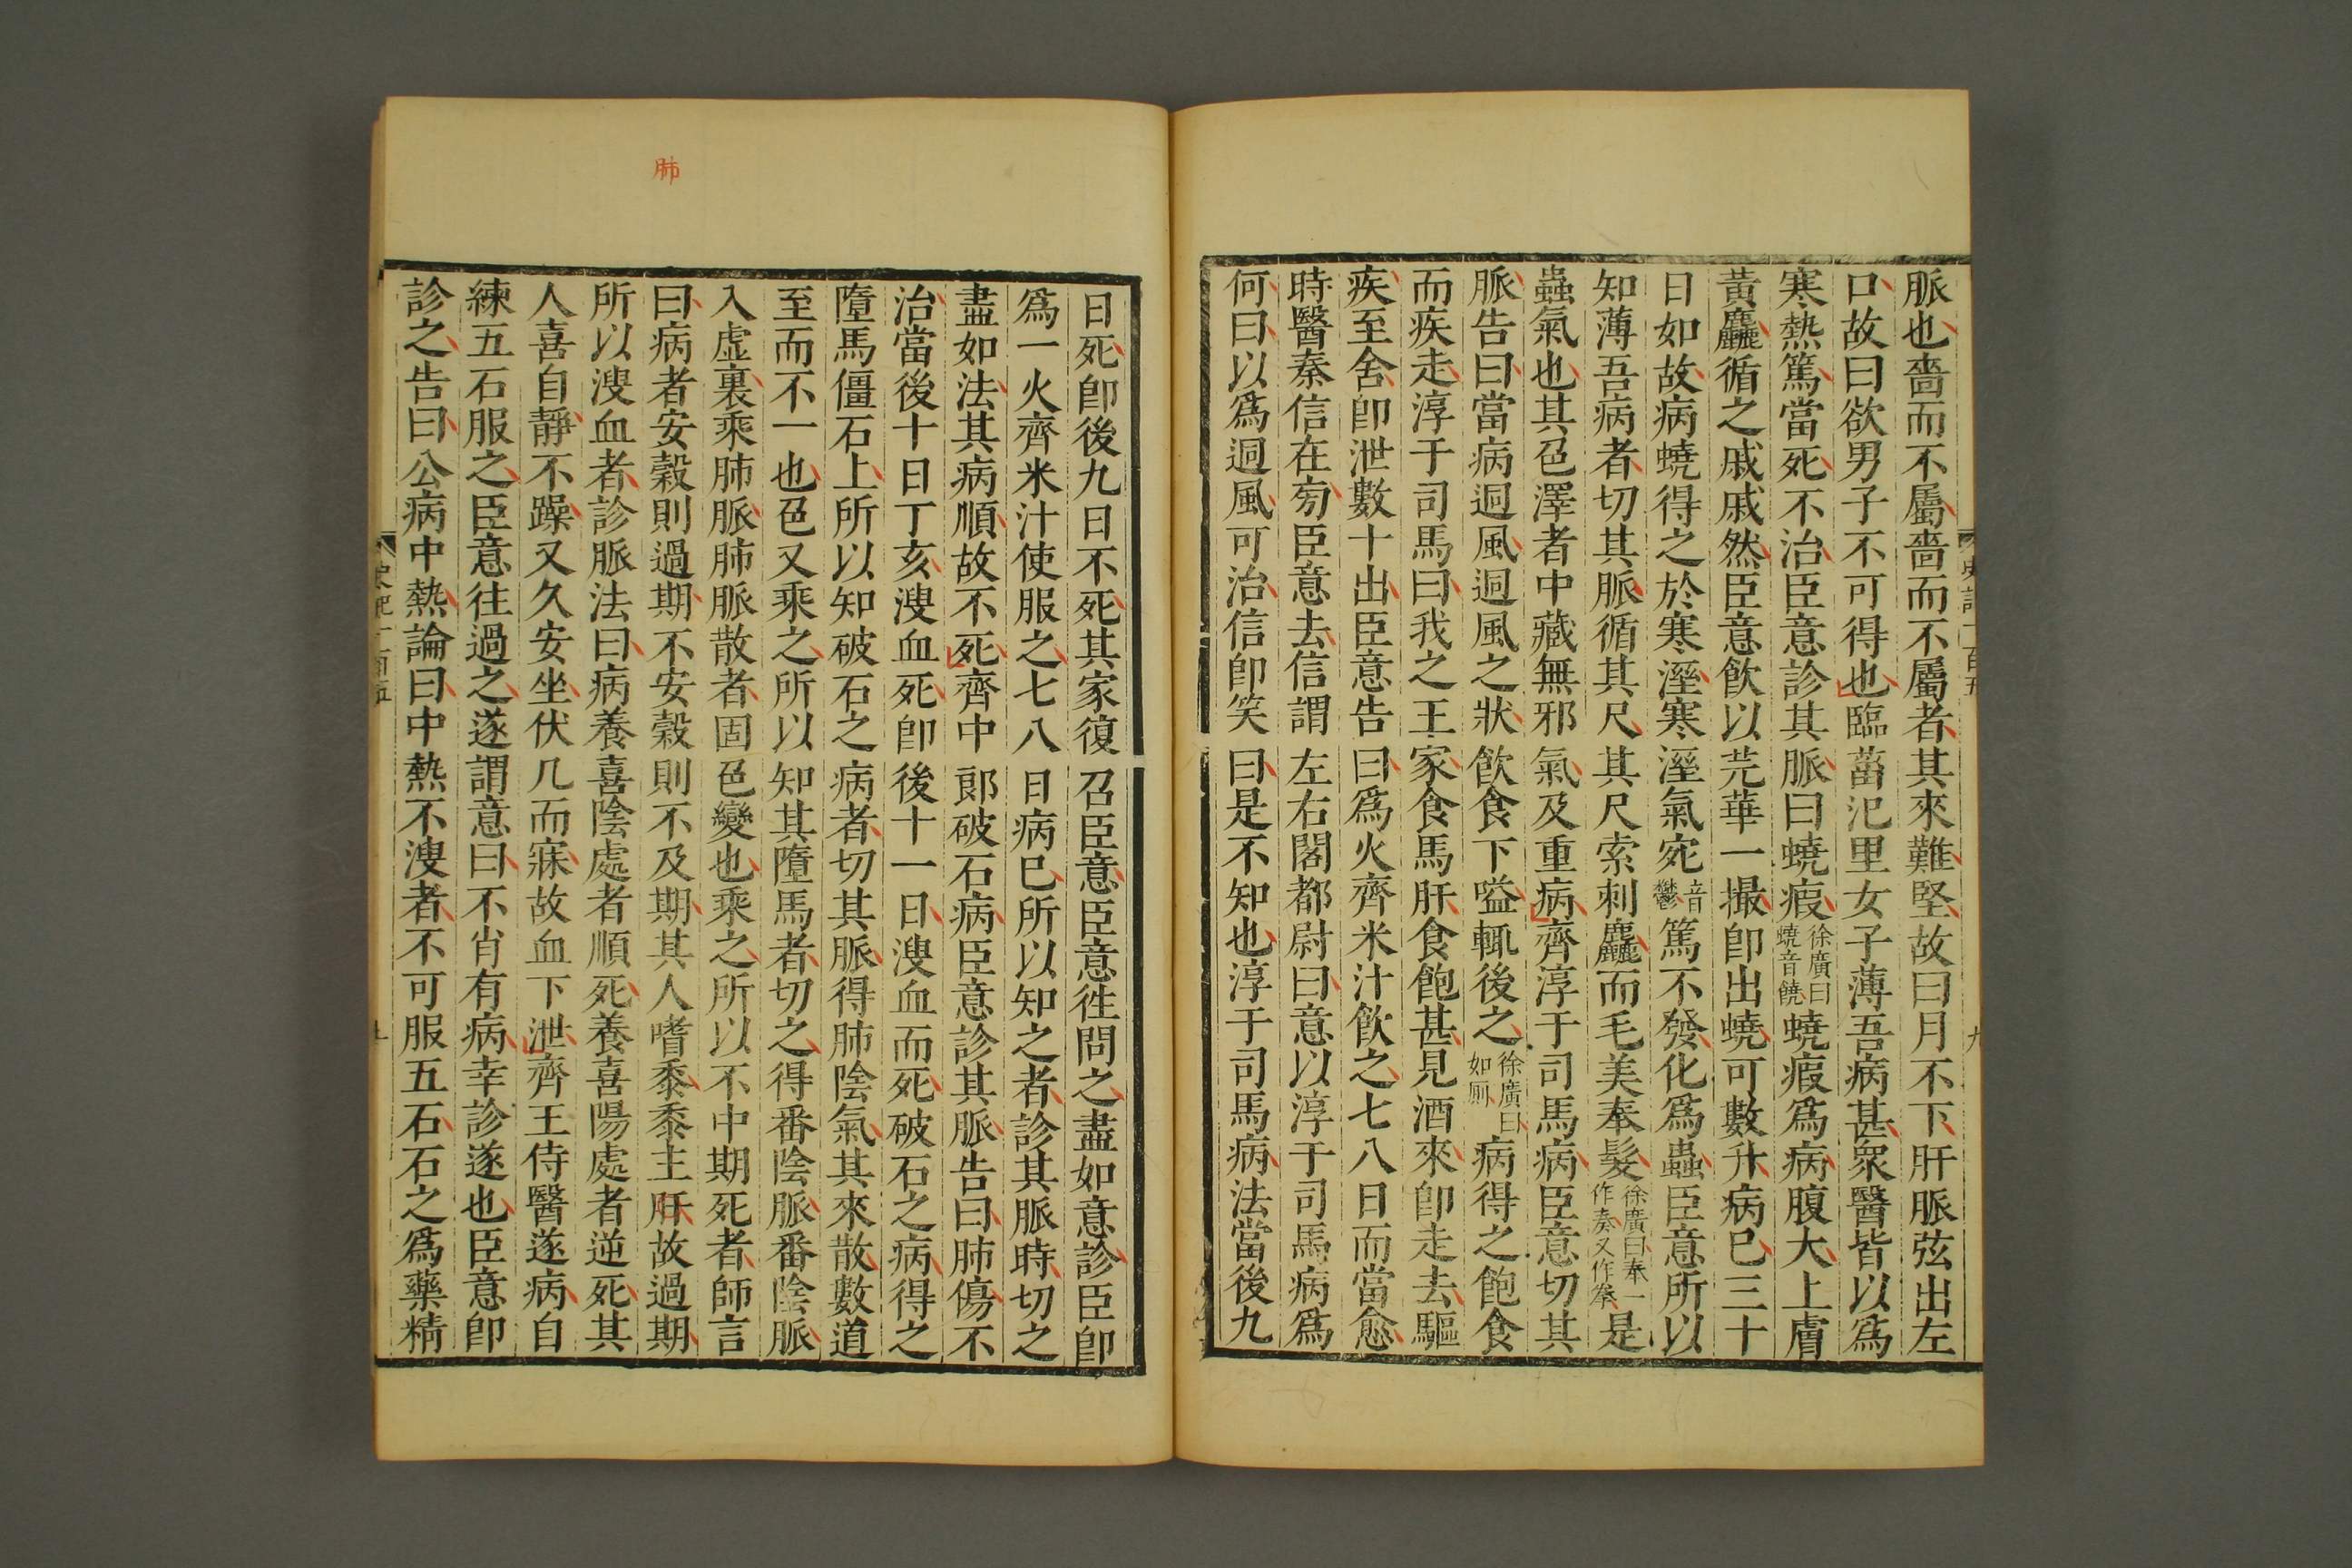 脈也嗇而不屬嗇而不屬者其來難堅故曰月不下肝脈弦出左
口故曰欲男子不可得也臨菑氾里女子薄吾病甚衆醫皆以爲
寒熱篤當死不治臣意診其脈曰蟯瘕徐廣曰蟯音饒蟯瘕爲病腹大上膚
黃麤循之戚戚然臣意飮以芫華一撮卽出蟯可數升病已三十
日如故病蟯得之於寒溼寒溼氣宛音鬱篤不發化爲蟲臣意所以
知薄吾病者切其脈循其尺其尺索刺麤而毛美奉髮徐廣曰奉一作奏又作秦是
蟲氣也其色澤者中藏無邪氣及重病齊淳于司馬病臣意切其
脈告曰當病迵風迵風之狀飮食下嗌輒後之徐廣曰如厠病得之飽食
而疾走淳于司馬曰我之王家食馬肝食飽甚見酒來卽走去驅
疾至舍卽泄數十出臣意告曰爲火齊米汁飮之七八日而當愈
時醫秦信在旁臣意去信謂左右閣都尉曰意以淳于司馬病爲
何曰以爲迵風可治信卽笑曰是不知也淳于司馬病法當後九
日死卽後九日不死其家復召臣意臣意往問之盡如意診臣卽
爲一火齊米汁使服之七八日病已所以知之者診其脈時切之
盡如法其病順故不死齊中郞破石病臣意診其脈告曰肺傷不
治當後十日丁亥溲血死卽後十一日溲血而死破石之病得之
墮馬僵石上所以知破石之病者切其脈得肺陰氣其來散數道
至而不一也色又乘之所以知其墮馬者切之得番陰脈番陰脈
入虛裏乘肺脈肺脈散者固色變也乘之所以不中期死者師言
曰病者安穀則過期不安穀則不及期其人嗜黍黍主肝故過期
所以溲血者診脈法曰病養喜陰處者順死養喜陽處者逆死其
人喜自靜不躁又久安坐伏几而寐故血下泄齊王侍醫遂病自
練五石服之臣意往過之遂謂意曰不肖有病幸診遂也臣意卽
診之告曰公病中熱論曰中熱不溲者不可服五石石之爲藥精
肺
史記一百五
九
史記一百五